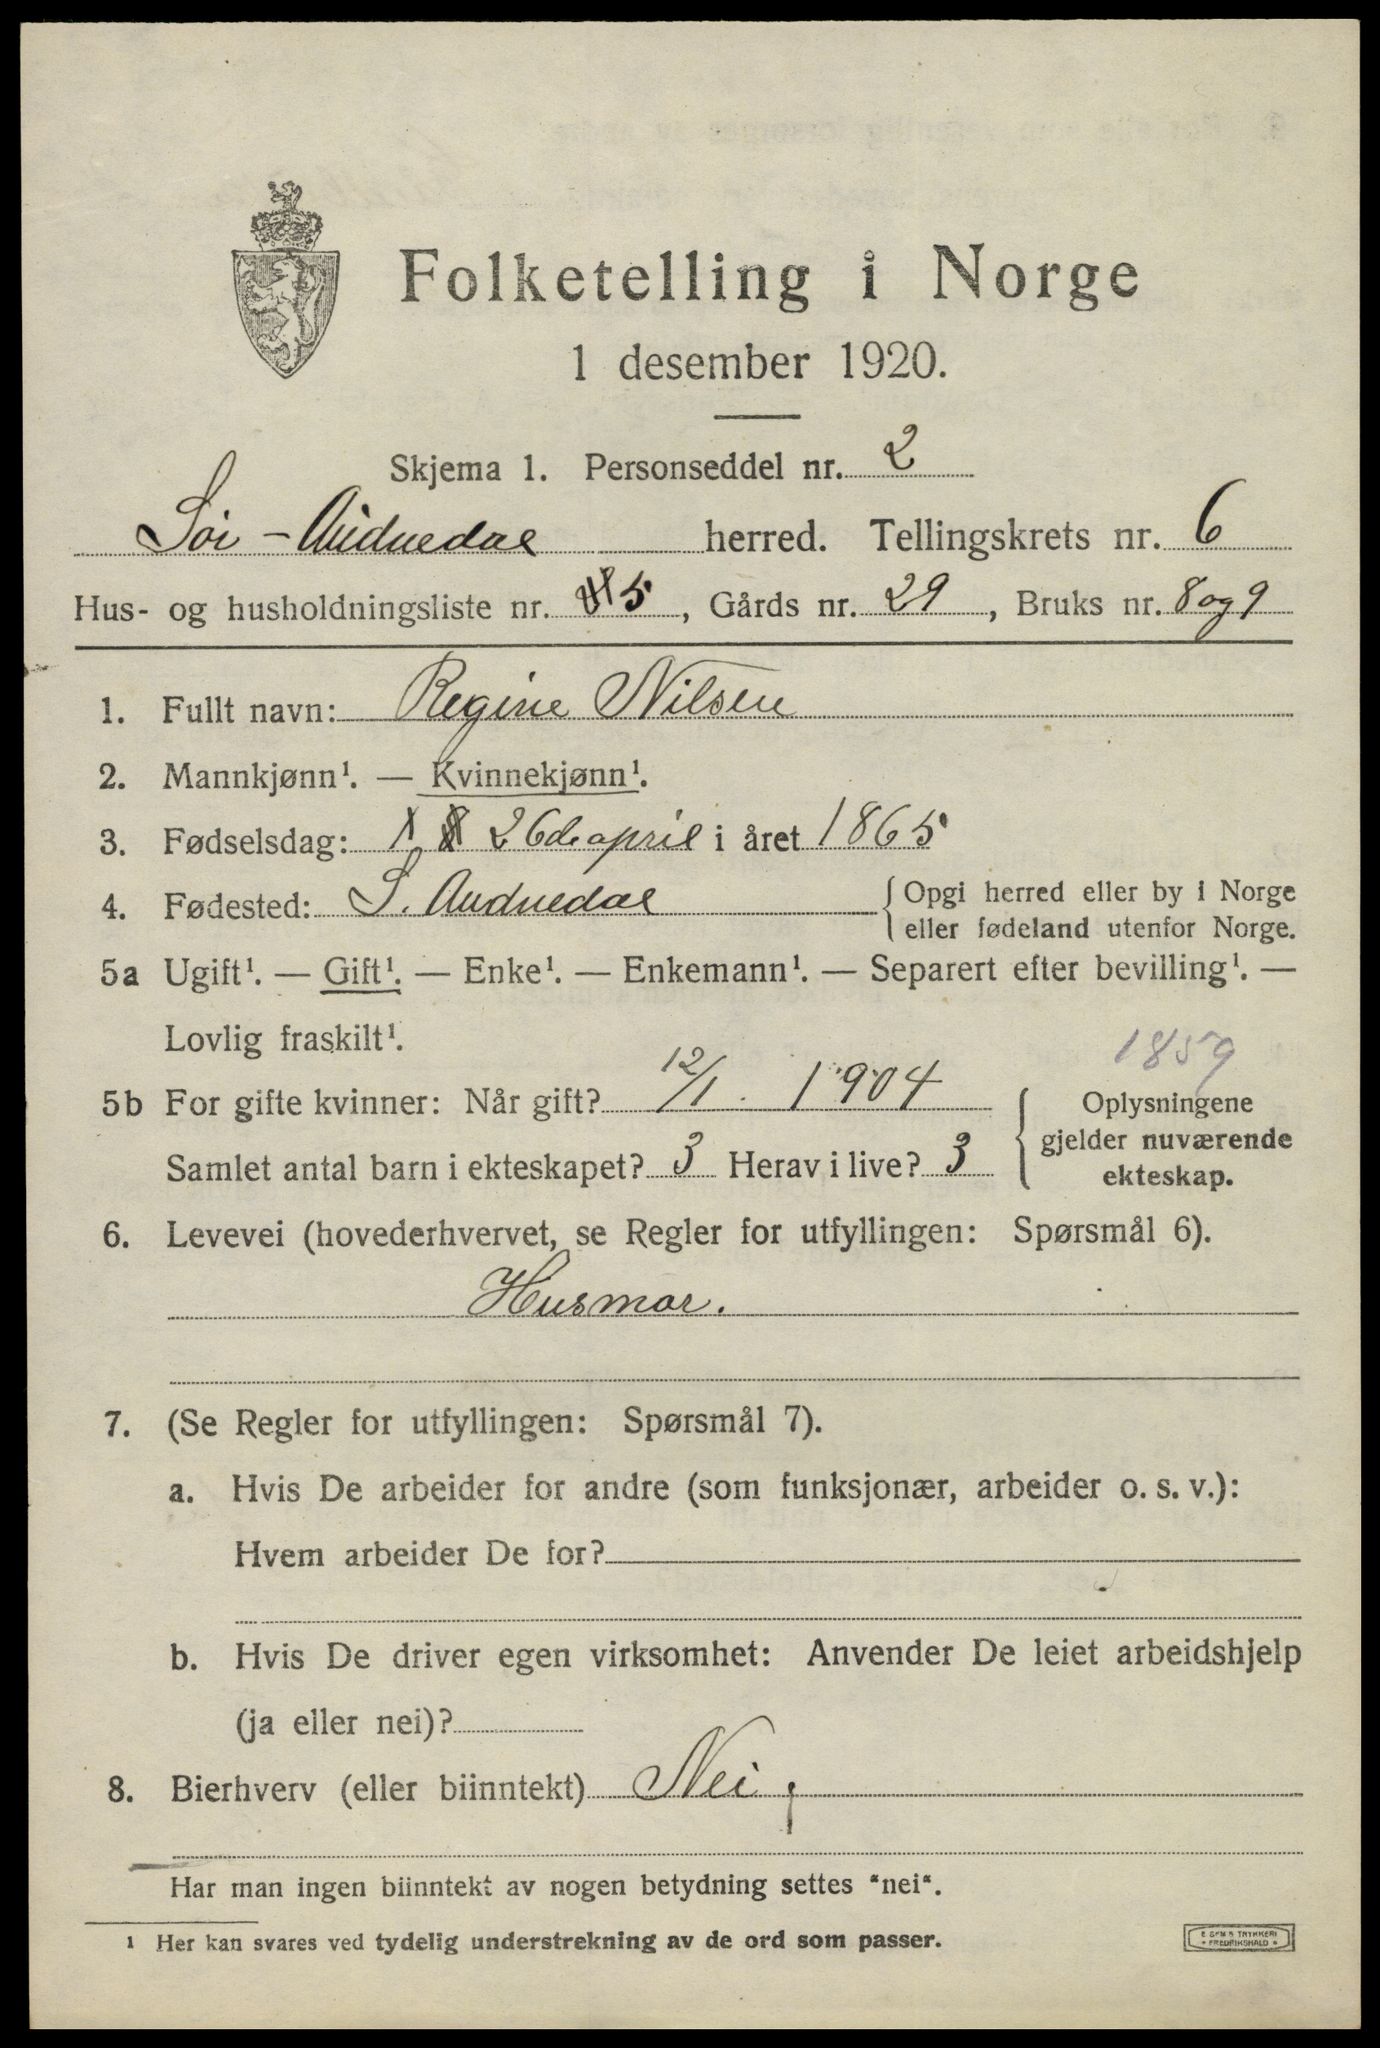 Folketelling i Norge
1 desember 1920.
Skjema 1. Personseddel nr. 2
Sør-Audnedal herred. Tellingskrets nr. 6
Hus- og husholdningsliste nr. 5, Gårds nr. 29, Bruks nr. 8 og 9
1. Fullt navn: Regine Nilsen
2. Mannkjønn¹. — Kvinnekjønn¹.
3. Fødselsdag: 26de april i året 1865
4. Fødested: S. Audnedal { Opgi herred eller by i Norge
eller fødeland utenfor Norge.
5a Ugift¹. — Gift¹. — Enke¹. — Enkemann¹. — Separert efter bevilling¹. —
Lovlig fraskilt¹.
1859
5b For gifte kvinner: Når gift? 12/1. 1904
Samlet antal barn i ekteskapet? 3 Herav i live? 3
{ Oplysningene
gjelder nuværende
ekteskap.
6. Levevei (hovederhvervet, se Regler for utfyllingen: Spørsmål 6).
Husmor.
7. (Se Regler for utfyllingen: Spørsmål 7).
a. Hvis De arbeider for andre (som funksjonær, arbeider o. s. v.):
Hvem arbeider De for?
b. Hvis De driver egen virksomhet: Anvender De leiet arbeidshjelp
(ja eller nei)?
8. Bierhverv (eller biinntekt) Nei
Har man ingen biinntekt av nogen betydning settes "nei".
¹ Her kan svares ved tydelig understrekning av de ord som passer.
TRYKKERI
FREDRIKSHALD